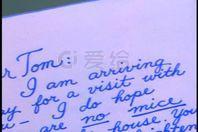 r Tom:
I am arriving
y for a visit with
u - I do hope
are no mice
house. You
爱给